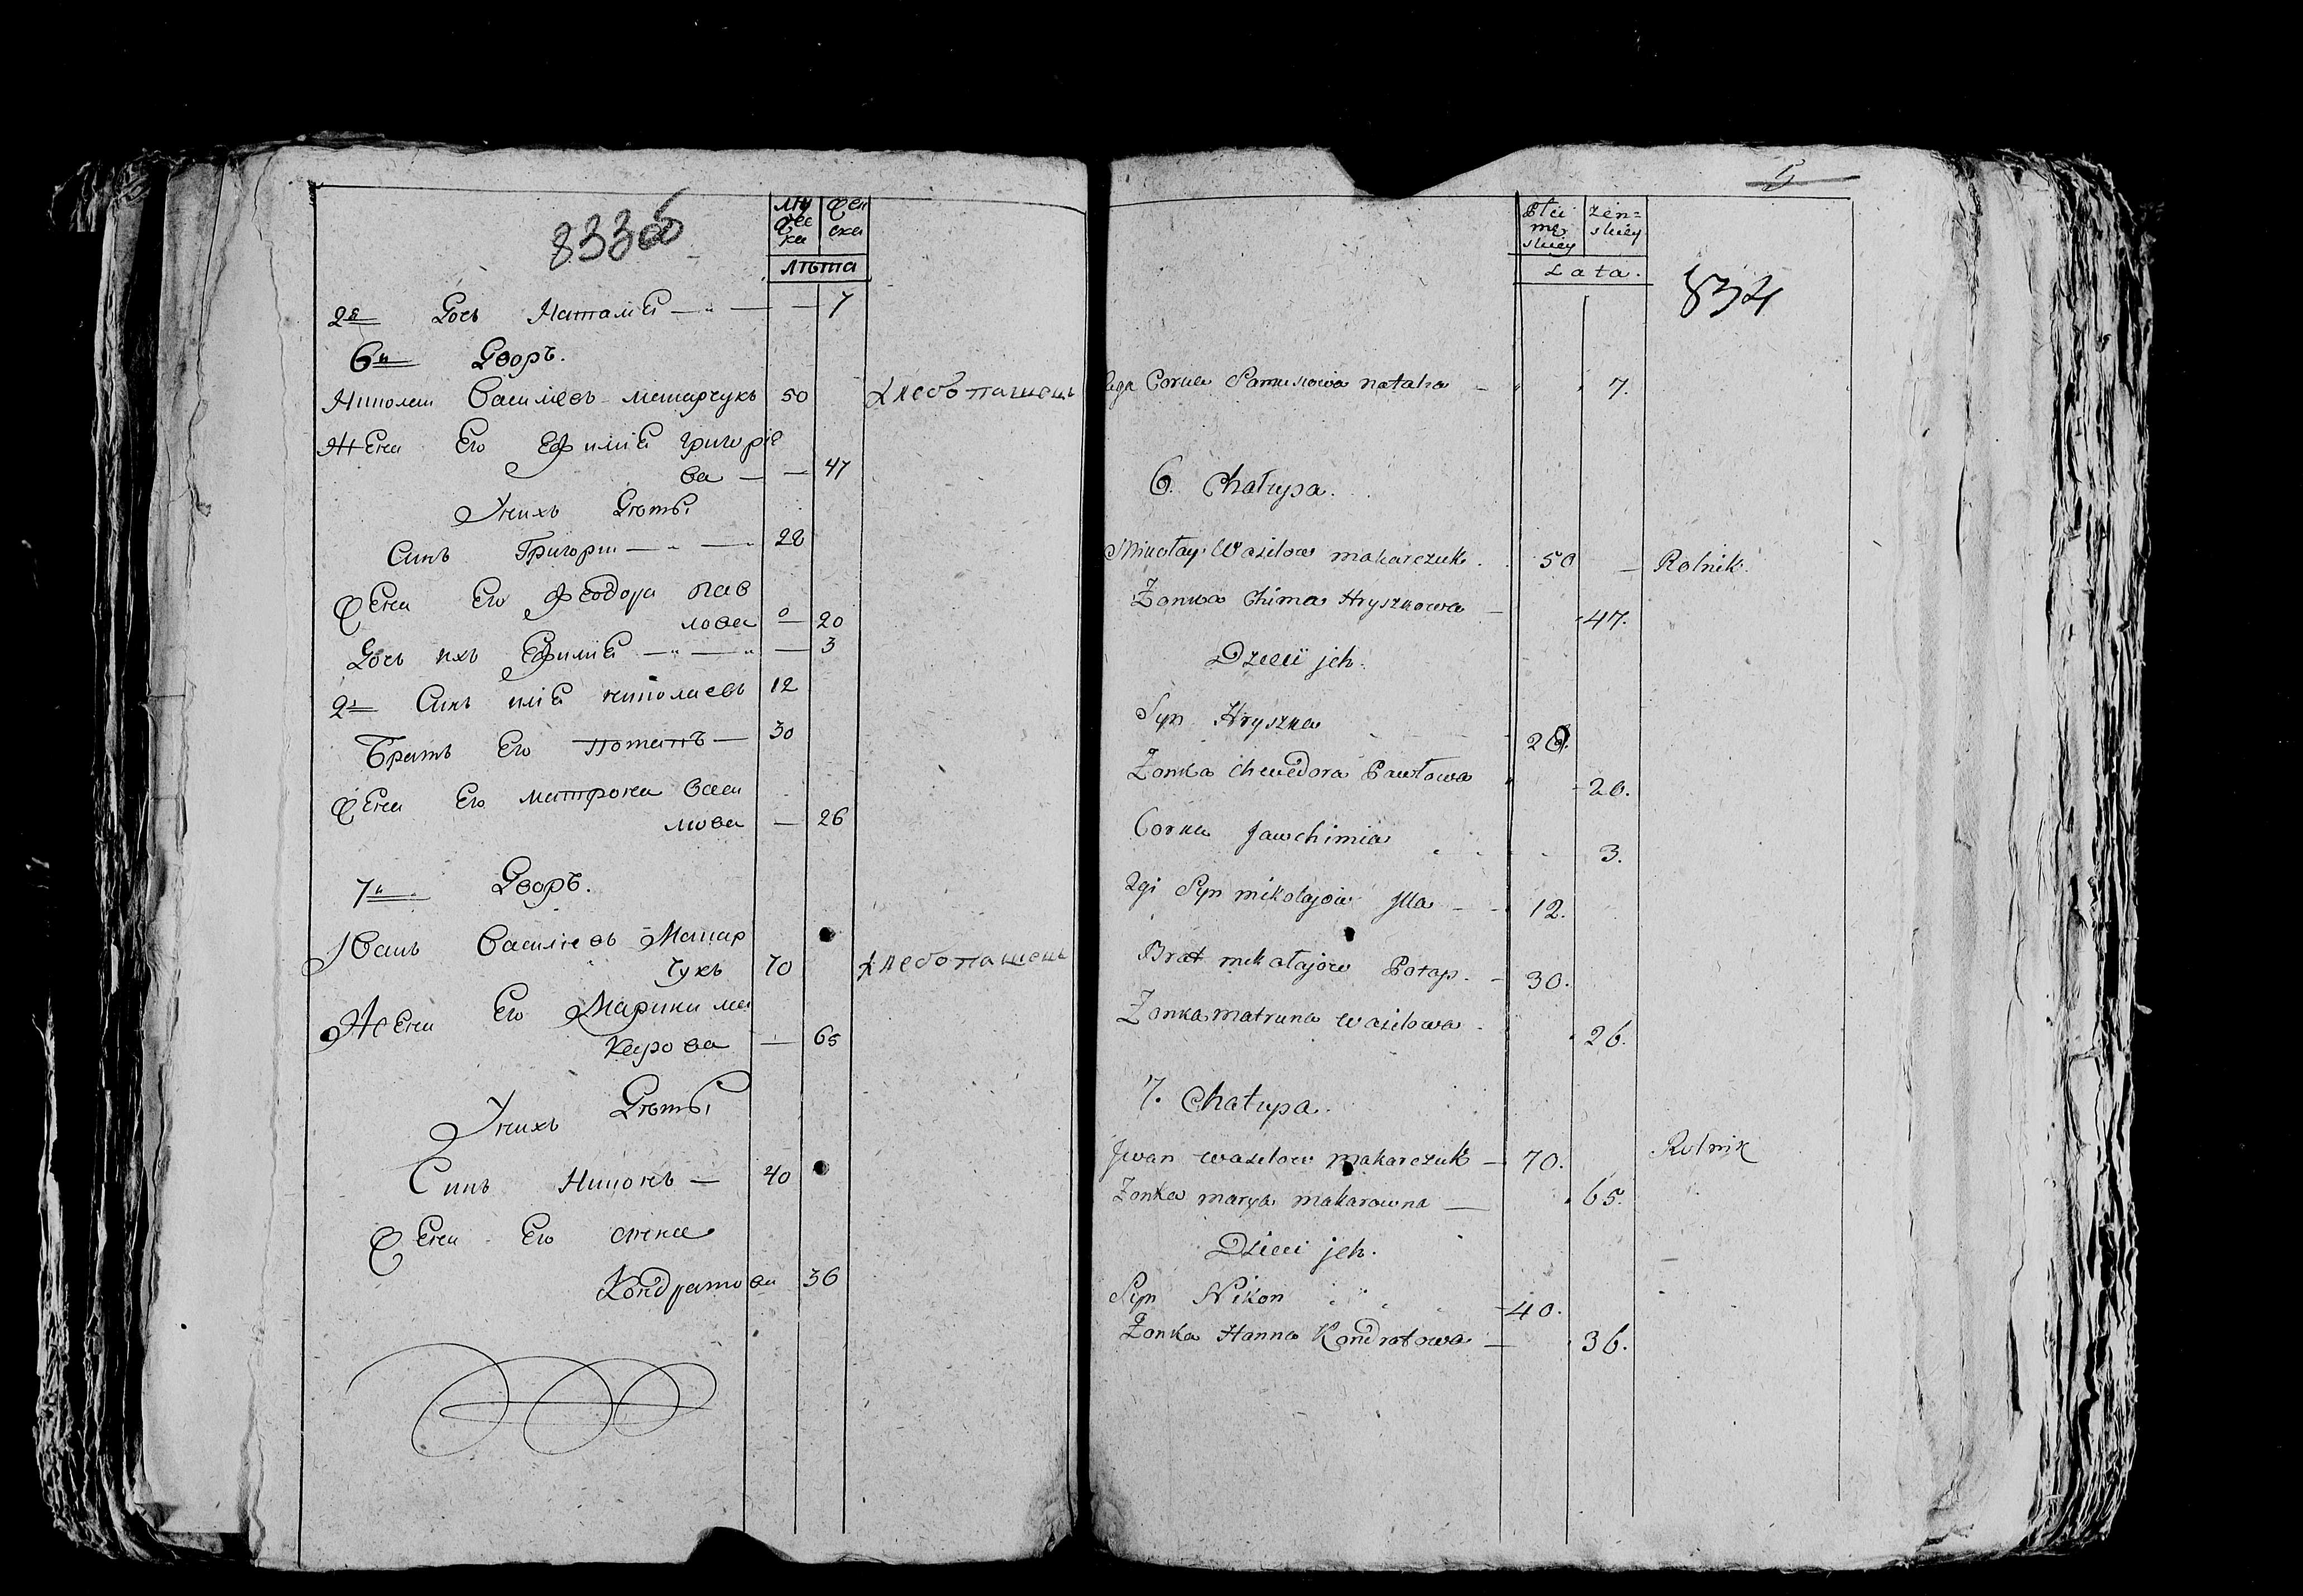 833об
Муж
ес
ка
Жен
ска
Лѣта
2я Дочь Наталия — 7
6й Дворъ.
Николай Василіевъ Макарчукъ 50 Хлебопашецъ
Жена Его Ефимия Григоріе
ва — — 47
У нихъ Дѣты
Синъ Григори — 28
Жена Его Феодора Пав
лова — 20
Дочь ихъ Ефимия — — 3
2й Синъ Илия Николаевъ 12
Братъ Его Потапъ — 30
Жена Его Матрона Васи
лова — 26
7й Дворъ.
Иванъ Василіевъ Макар
чукъ 70 Хлебопашецъ
Жена Его Марина Ма
карова — 65
У нихъ Дѣты
Синъ Никонъ — 40
Жена Его Анна
Кондратова 36
5
Płci
mę
skiey
żeń=
skiey
Lata.
834
2ga Corka Natalia — 7.
6. Chałupa.
Mikołay Wasilow Makarczuk. 50 — Rolnik.
Zonka Chima Hryszkowa — 47.
Dzieci jch.
Syn Hryszka 28.
Zonka Chwedora Pawłowa 20.
Corka Jawchimia 3.
2gi Syn Mikołajow Jlla — 12.
Brat Mikołajow Potap. — 30.
Zonka Matruna Wasilowa. 26.
7. Chałupa.
Jwan Wasilow Makarczuk — 70. Rolnik
Zonka Marya Makarowna — 65.
Dzieci jch.
Syn Nikon 40.
Zonka Hanna Kondratowa — 36.